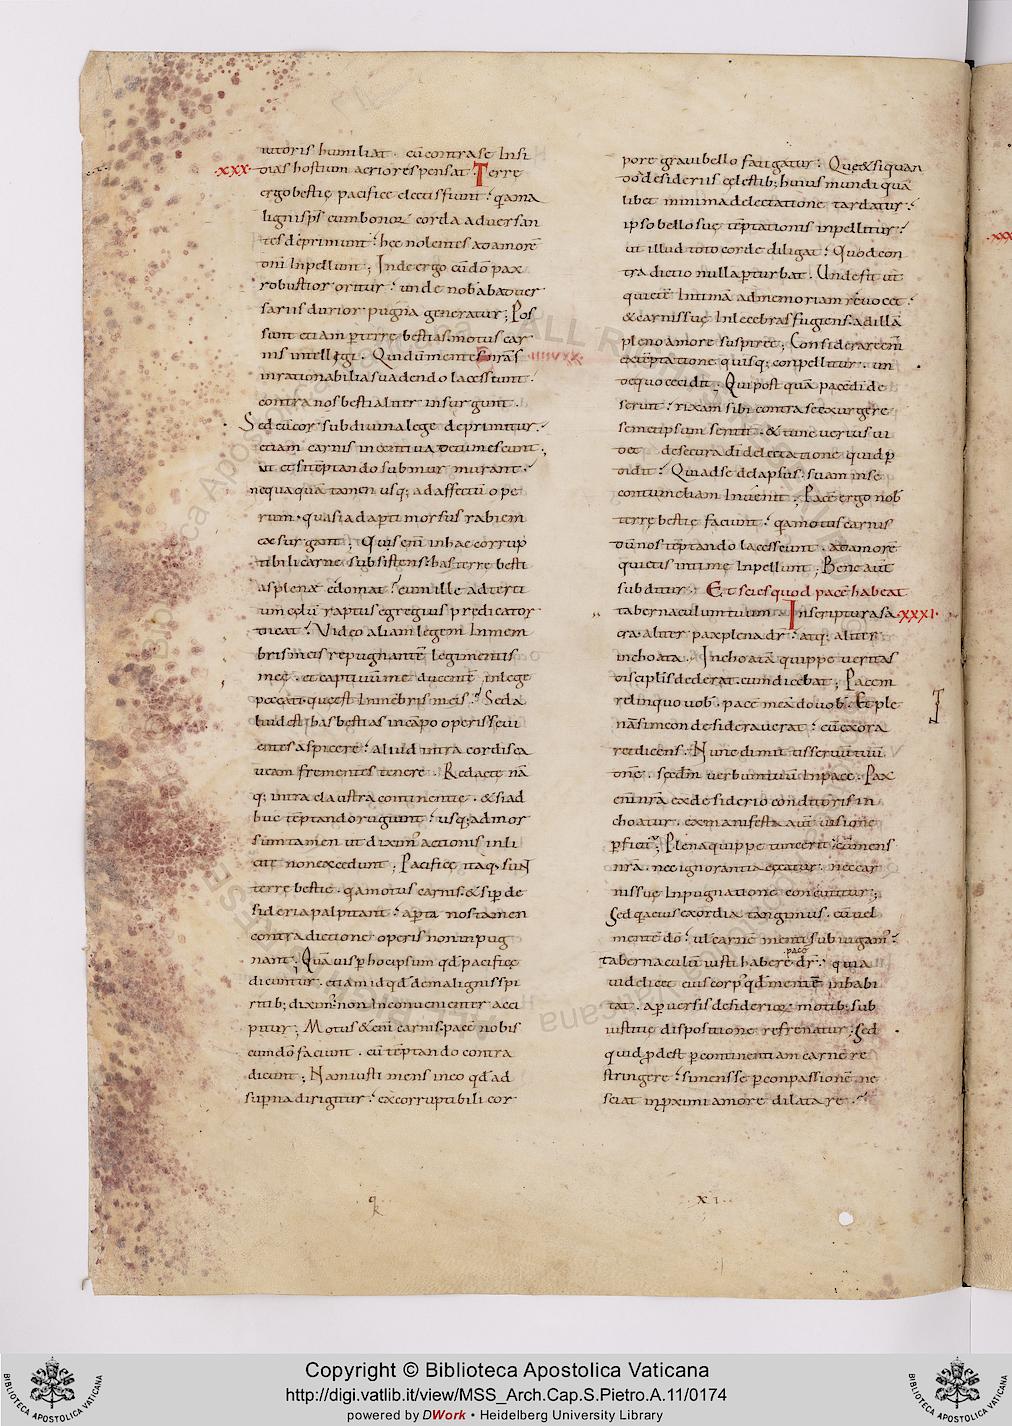 utoris humiliat · cū contra se insi
·xxx· dias hostium acriores pensat Terrę
ergo bestię pacificę electis sunt : q̄a ma
ligni sp̄s cum bonoꝝ corda adversan
tes deprimunt : hęc nolentes ad amorē
dn̄i inpellunt ; Inde ergo cū dō pax
robustior oritur : unde nob̄ ab adver
sariis durior pugna generatur ; Pos
sunt etiam ꝑ terrę bestias motus car
nis intellegi · Qui dū mentē nr̄ās
inrationabilia suadendo lacessunt :
contra nos bestialiter insurgunt ·
Sed cū cor sub divina lege deprimitur :
etiam carnis incentiva detumescunt ;
ut etsi tēptando submurmurant :
nequaquā tamen usq; ad affectū ope
rum · quasi ad apti morsus rabiem
exsurgant ; Quis enī in hac corrup
tibili carne subsistens : has terrę besti
as plenę edomat : cum ille ad terti
um cęlū raptus egregius predicator
dicat : Video aliam legem in mem
bris meis repugnantē legi mentis
meę · et captivū me ducentē in lege
peccati · quę est in mēbris meis : Sed a
liud est has bestias in cāpo operis sevi
entes aspicere : aliud intra cordis ca
veam frementes tenere · Redactę nā
q; intra claustra continentię · & si ad
huc tēptando rugiunt : usq; ad mor
sum tamen ut diximꝰ actionis inli
citę non excedunt ; Pacificę itaq; sunt
terrę bestię · q̄a motus carnis & si ꝑ de
sideria palpitant : apta nos tamen
contradictione operis non inpug
nant ; Quāvis ꝑ hoc ipsum qd̄ pacificę
dicuntur · etiam id qd̄ de malignis spi
ritib; diximꝰ non inconvenienter acci
pitur ; Motus &enī carnis · pacē nobis
cum dō faciunt · cū tēptando contra
dicunt ; Nam iusti mens in eo qd̄ ad
supna dirigitur : ex corruptibili cor
q
pore gravi bello fatigatur : Quę & si quan
do a desideriis cęlestib; huius mundi quā
libet minima delectatione tardatur :
ipso bello suę tēptationis inpellitur :
ut illud toto corde diligat : Quod con
tradictio nulla ꝑturbat · Unde fit ut
quietē intimā ad memoriam revocet :
& carnis suę inlecebras fugiens · ad illā
pleno amore suspiret ; Considerare enī
ex tēptatione quisq; conpellitur · un
de quo cecidit ; Qui post quā pacē di de
serunt : rixam sibi contra se exurgere
semetipsum sentit · & tunc verius vi
det de secura di delectatione quid ꝑ
didit : Qui ad se delapsus : suam in se
contumeliam invenit ; Pacē ergo nob̄
terrę bestię faciunt : q̄a motus carnis
dū nos tēptando lacesseunt · ad amorē
quietis intimę inpellunt ; Bene aūt
subditur · Et scies quod pacē habeat
tabernaculum tuum · In scriptura sa ·xxxi·
cra · aliter pax plena dr̄ : atq; aliter
inchoata · Inchoatā quippe veritas
discipulis dederat · cum dicebat ; Pacem
relinquo vob̄ · pacē meā do vob̄ · Et ple
nā simeon desideraverat : cū exora
ret dicens : Nunc dimittis servū tuū
dn̄e · scd̄m verbum tuū in pace · Pax
enī nr̄a ex desiderio conditoris in
choatur · ex manifesta aūt visione
ꝑficit ; Plena quippe tunc erit : cū mens
nr̄a · nec ignorantia cęcatur · nec car
nis suę inpugnatione concutitur ;
Sed q̄a eius exordia tangimus · cū vel
mentē dō : vel carnē menti subiugamꝰ :
pacē
tabernaculū iusti habere dr̄ : quia
videlicet eius corpꝰ qd̄ mentē inhabi
tat · a ꝑversis desiderioꝝ motib; sub
iustitię dispositione refrenatur ; Sed
quid ꝓdest ꝑ continentiam carnē re
stringere : si mens se ꝑ conpassionē ne
sciat in ꝓximi amore dilatare ·
xi
Copyright © Biblioteca Apostolica Vaticana
http://digi.vatlib.it/view/MSS_Arch.Cap.S.Pietro.A.11/0174
powered by DWork • Heidelberg University Library
BIBLIOTECA APOSTOLICA VATICANA
BIBLIOTECA APOSTOLICA VATICANA